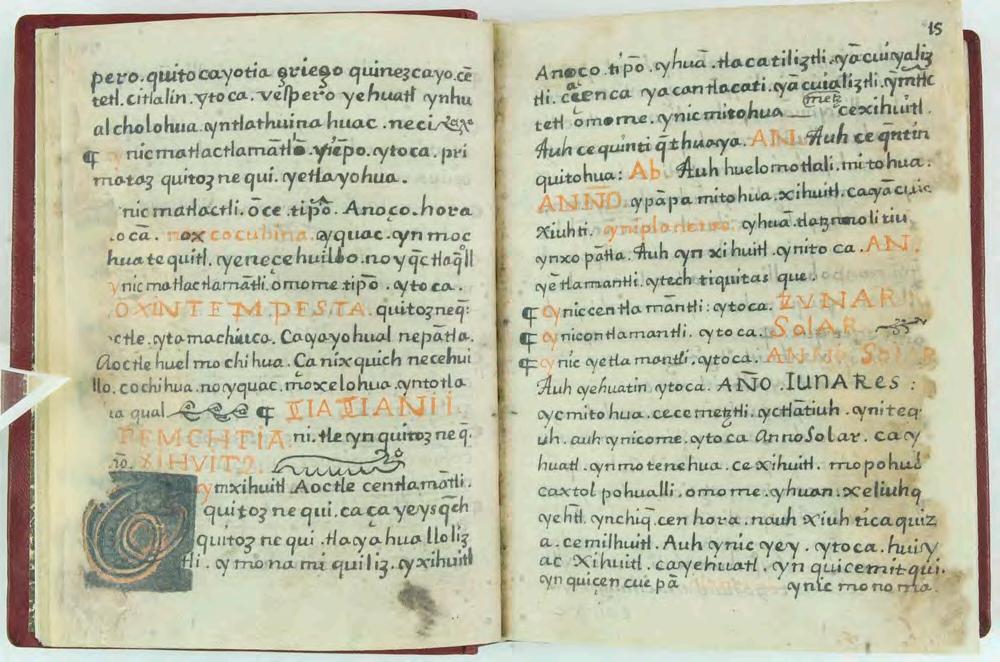 pero. quitocayotia griego quinezcayo. cē
tetl. citlalin. ytoca. vespero yehuatl ynhu
alcholohua. yntlathuina huac. neci
¶ ynic matlactlamātlo. yiepo. ytoca. pri
matoz quitoz ne qui. yetlayohua.
ynic matlactli. oce. tipō. Anoço. hora
.ocā. nox cocubina. yquac. yn moc
huatequitl. yeneçehuilbo. noyq̄c tlaq̄ll
ynic matlactlamātli. omome tipō. ytoca.
OXINTEMPESTA. quitozneq̄:
ctle. ytamachiuco. Caya yohual nepātla.
Aoctle huel mochihua. Ca nixquich necehui
llo. cochihua. noyquac. moxelohua. yntotla
ua qual ¶
ni. tle yn quitoz ne q̄.
XIHVIT
ymxihuitl. Aoctle centlamātli.
quitoz ne qui. ca ça yeysq̄ch
quitoz ne qui. tlayahualloliz
tli. ymonamiquiliz. yxihuitl
15
Anoco. tipō. yhuā. tlacatiliztli. yyācuiyaliz
tli. ceenca yacantlacati. yā cuializtli. ymtlc
tetl omome. ynic mitohua metz cexihuitl.
Auh ce quinti q̄thuaya. AN. Auh ce q̄ntin
quitohua: Ab. Auh huelomotlali. mitohua.
ANÑO. ypāpa mitohua. xihuitl. cayācuic
xiuhti. yniplaneta. yhuā.
ynxo pātla. Auh yn xihuitl. ynito ca. AN.
yētlamantli. ytech tiquitas que.
¶ ynic centla māntli: ytoca. ZVNAR
¶ ynic ontlamantli. ytoca. SOLAR
¶ ynic yetla mantli. ytoca. SOLAR
Auh yehuatin ytoca. AÑO. IUNARES:
ycmitohua. cecemetztli. yctlātiuh. yniteq
uh. auh ynicome. ytoca Anno Solar. ca y
huatl. ynmotenehua. ce xihuitl. mopohua
caxtol pohualli. omome. yhuan. xeliuhq
yehtl. ynchiq̄. cen hora. nauh xiuhtica quiz
a. cemilhuitl. Auh ynic yey. ytoca. huiy
ac xihuitl. cayehuatl. yn quicemitqui.
yn quiçen cuepā ynic monoma.